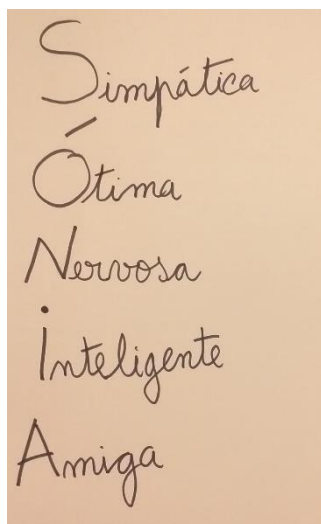 Simpática
Ótima
Nervosa
Inteligente
Amiga